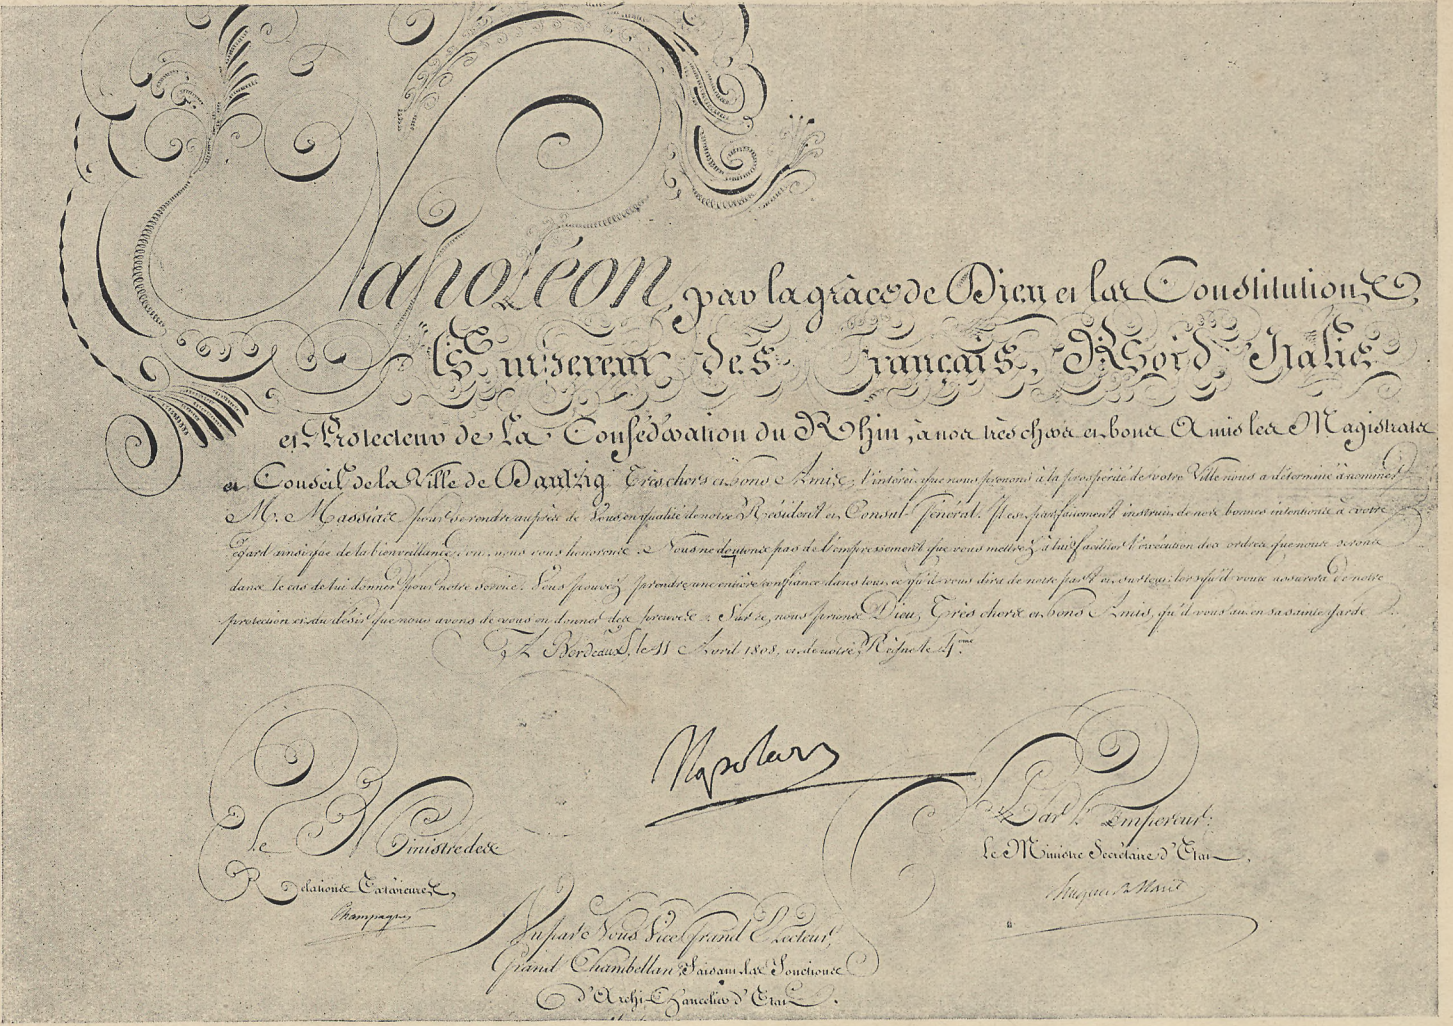 Napoléon, par la grâce de Dieu et les Constitutions,
Empereur des Français, Roi d'Italie
et Protecteur de La Confédération du Rhin, à nos très chers et bons Amis les Magistrats
et Conseil de la Ville de Dantzig Très chers et bons Amis; l'intérêt que nous prenons à la prospérité de votre Ville nous a déterminé à nommer
Mr. Massias pour se rendre auprès de Vous en qualité de notre Résident et Consul Général. Il est parfaitement instruit de nos bonnes intentions à votre
égard ainsi que de la bienveillance dont nous vous honorons. Nous ne doutons pas de l'empressement que vous mettrez à lui faciliter l'exécution des ordres que nous serons
dans le cas de lui donner pour notre service. Vous pouvez prendre une entière confiance dans tout ce qu'il vous dira de notre part et surtout lorsqu'il vous assurera de notre
protection et du désir que nous avons de vous en donner des preuves. Sur ce, nous prions Dieu, Très chers et bons Amis, qu'il vous ait en sa sainte garde
A Bordeaux, le 11 Avril 1808, et de notre Règne le 4.me
Napoleon
Le Ministre des
Relations Extérieures,
Champagny
Par l'Empereur:
Le Ministre Secrétaire d'Etat,
Hugues B. Maret
Vu par Nous Vice Grand Electeur,
Grand Chambellan, Faisant les Fonctions
d'Archi-Chancelier d'Etat.